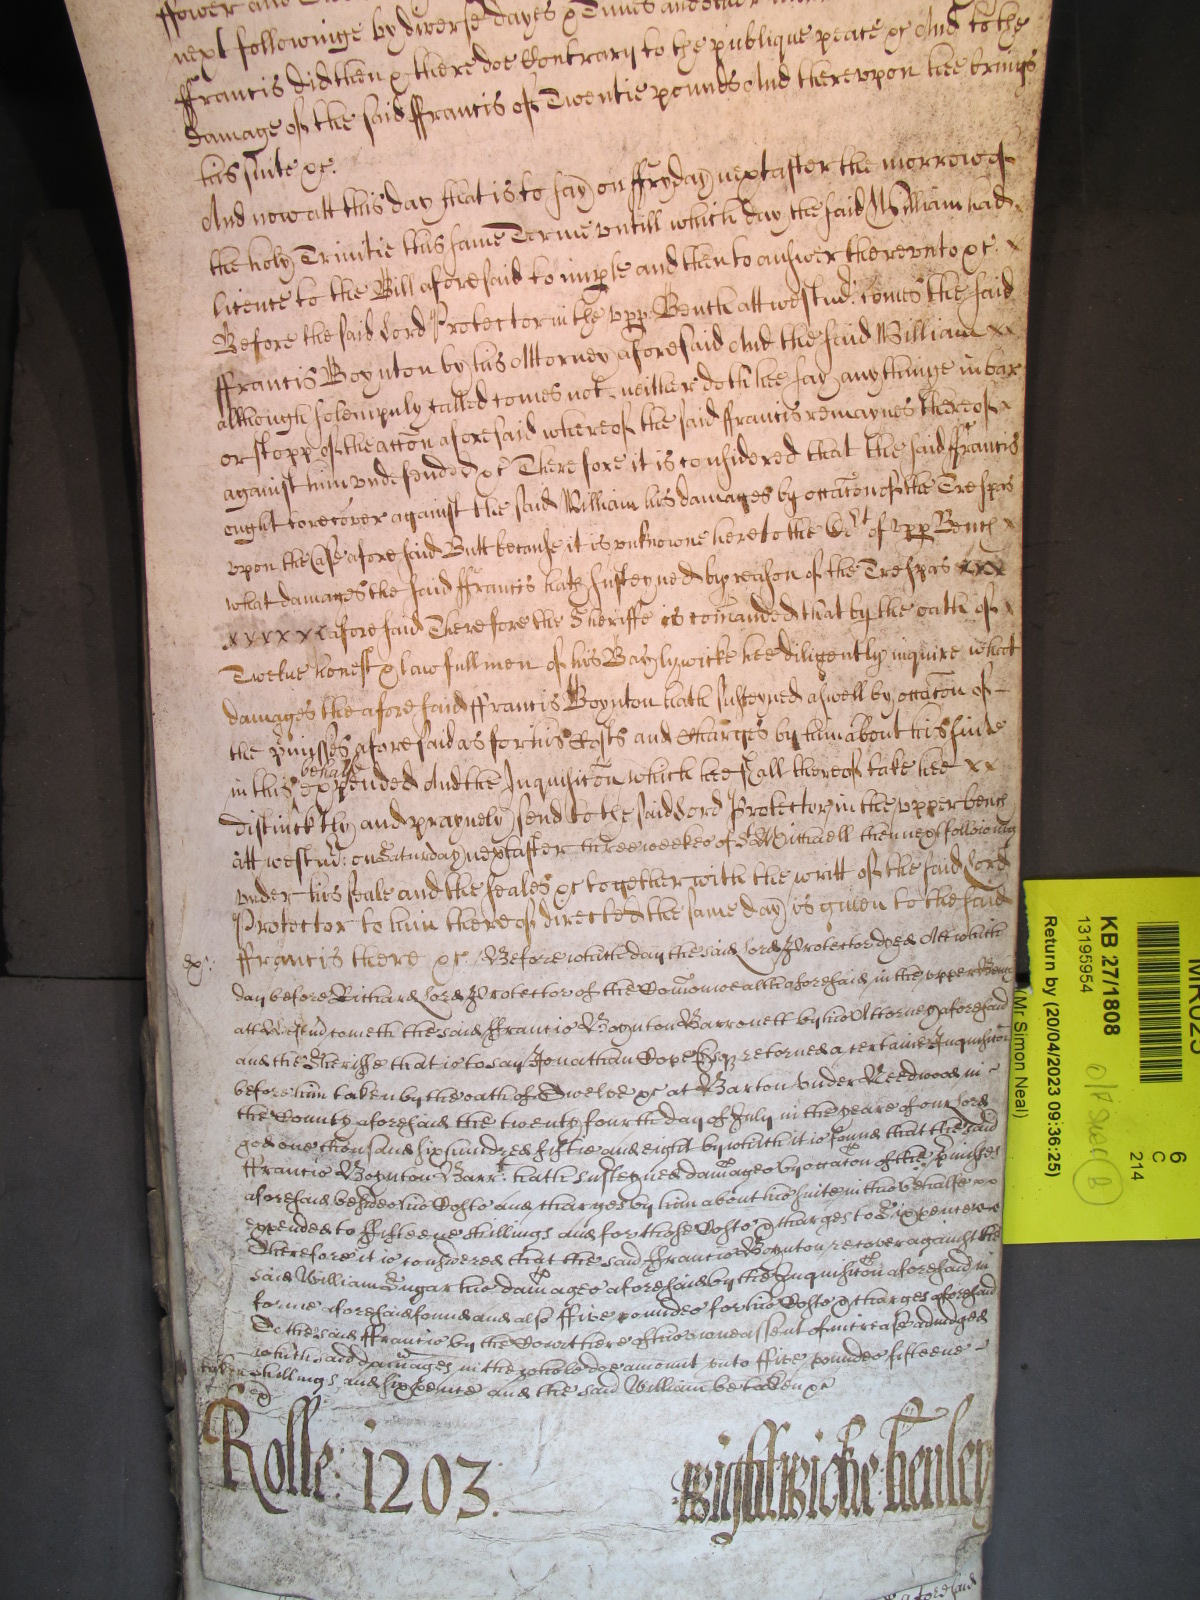 next followinge by diverse dayes & Times and other
ffrancis did then & there doe Contrary to the publique peace &c And to the
damage of the said ffrancis of Twentie pounds And therevpon hee brings
his suite &c.
And now att this day that is to say on ffryday next after the morrow of
the holy Trinitie this same Terme vntill which day the said William had
licence to the Bill aforesaid to imple and then to answer therevnto &c. x
Before the said Lord Protector in the vpp Bench att westmr: comes the said
ffrancis Boynton by his Attorney aforesaid And the said William xx
although solempnly called comes not, neither doth hee say any thinge in bar
or stopp of the accon aforesaid whereof the said ffrancis remaynes thereof x
against him vndefended &c Therefore it is considered that the said ffrancis
ought to recover against the said William his damages by occacon of the Trespas
vpon the Case aforesaid Butt because it is vnknowne here to the Crt of vpp Bench x
what damages the said ffrancis hath susteyned by reason of the Trespas xxx
xxxxxx aforesaid Therefore the Sheriffe is comanded that by the oath of x
Twelue honest & lawfull men of his Baylywicke hee diligently inquire what
damages the aforesaid ffrancis Boynton hath susteyned aswell by occacon of -
the pmisses aforesaid as for his Costs and Charges by him about his suite
in this behalfe expended And the Inquisicon which hee shall thereof take hee xx
distincktly and playnely send to the said Lord Protector in the vpper bench
att westmr: on Saturday next after three weekes of St Michaell then next followinge
vnder his seale and the seales &c together with the writt of the said Lord
Protector to him thereof directed the same day is giuen to the said
ffrancis there &c. Before which day the said Lord Protector dyed Att which
day before Richard Lord Protector of the Comonwealth aforesaid in the vpper Bench
att Westmr cometh the said ffrancis Boynton Barronett by his Attorney aforesaid
and the Sheriffe that is to say Jonathan Cope Esqr retorned a certaine Inquisicon
before him taken by the oath of Twelve &c at Barton vnder Needwood in -
the County aforesaid the twenty fourth day of July in the yeare of our Lord
god one thousand six hundred fiftie and eight by which it is found that the said
ffrancis Boynton Barrt. hath susteyned damages by occacon of the pmisses
aforesaid besides his Costs and charges by him about his suite in this behalfe xx
expended to ffifteene shillings and for those Costs & charges to Sixpence x
Therefore it is considered that the said ffrancis Boynton recover against the
said William Sugar his damages aforesaid by the Inquisicon aforesaid in
forme aforesaid found and also ffive poundes for his Costs & charges aforesaid
To the said ffrancis by the Court here of his owne assent of increase adiudged
which said damages in the whole doe amount vnto ffive poundes fifteene -
shillings and sixpence and the said William be taken &c
Rolle: 1203.
wightwicke: henley
aforesaid
KB 27/1808
13195954
Return by (20/04/2023 09:36:25)
(Mr Simon Neal)
6
C
214